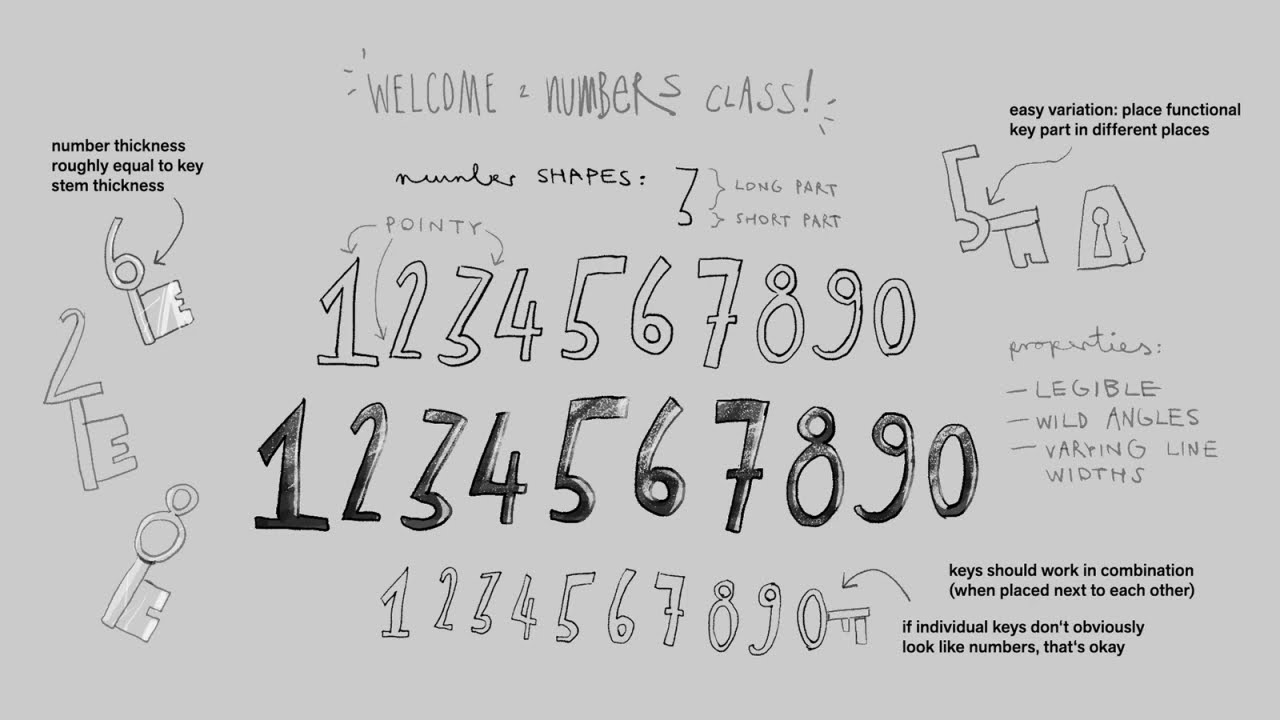 WELCOME 2 NUMBERS CLASS!
number thickness
roughly equal to key
stem thickness
easy variation: place functional
key part in different places
number SHAPES: 3
LONG PART
SHORT PART
POINTY
6
5
1234567890
2
properties:
– LEGIBLE
– WILD ANGLES
– VARYING LINE
WIDTHS
1234567890
8
1234567890
keys should work in combination
(when placed next to each other)
if individual keys don't obviously
look like numbers, that's okay